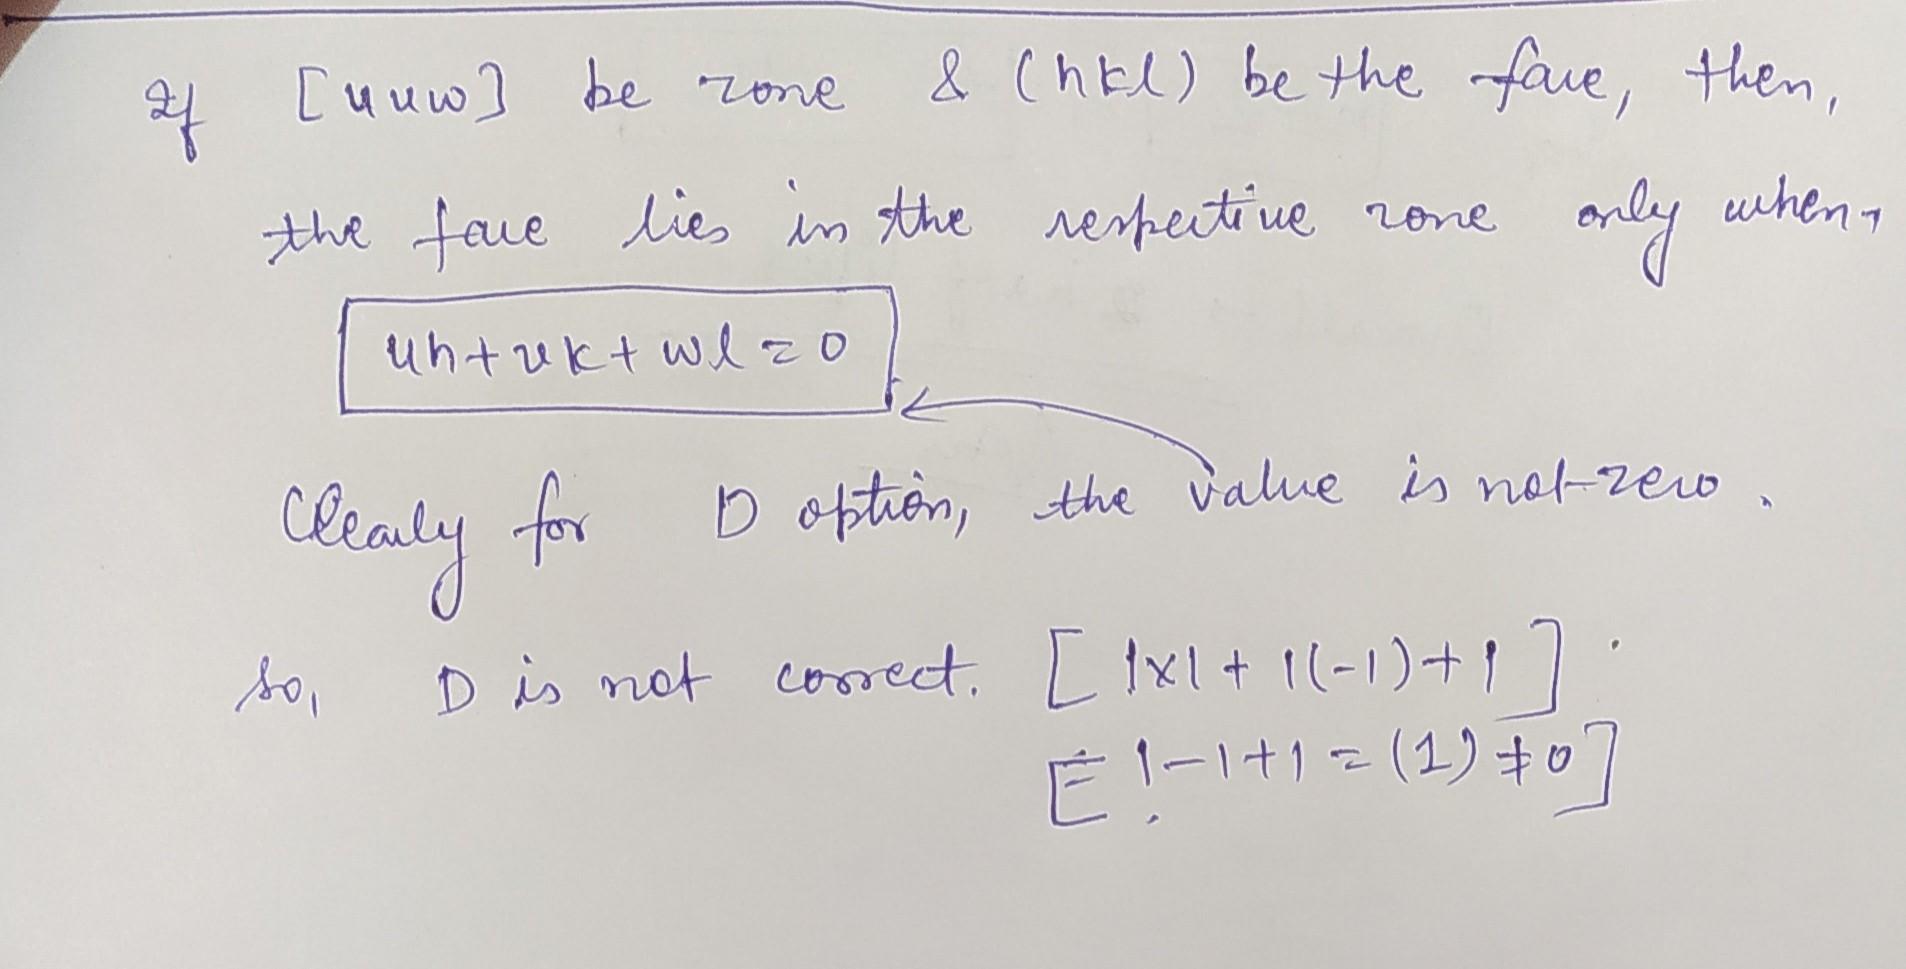 If [uuw] be zone & (hkl) be the face, then,
the face lies in the respective zone only when,
uh+vk+wl=0
Clearly for D option, the value is not zero.
So, D is not correct. [1x1+1(-1)+1]
[= 1-1+1=(1)≠0]